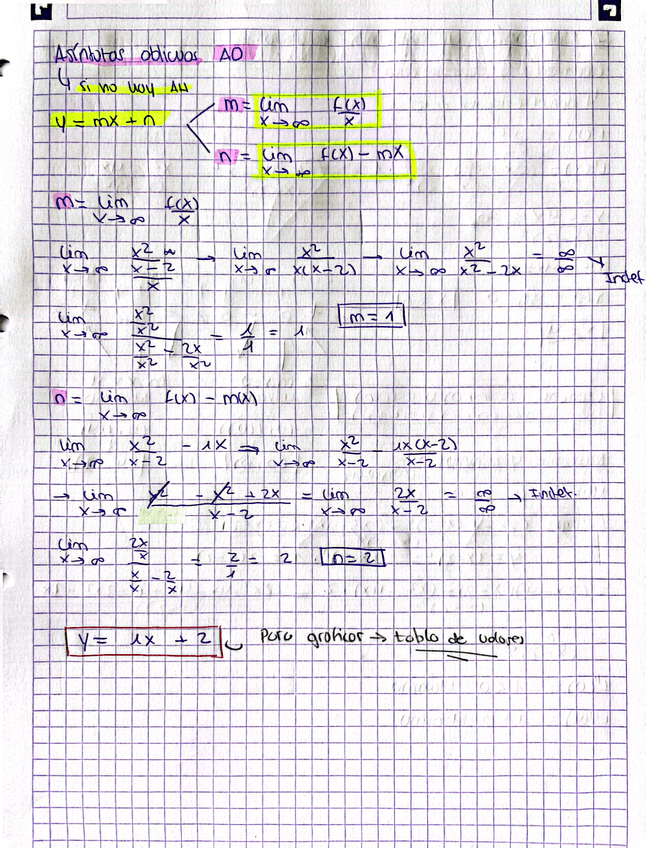 Asíntotas oblicuas AO
↳ si no hay AH
y = mx + n
m = lim x→∞ f(x)/x
n = lim x→∞ f(x) - mx
m = lim x→∞ f(x)/x
lim x→∞ (x²/(x-2))/x → lim x→∞ x²/(x(x-2)) → lim x→∞ x²/(x²-2x) = ∞/∞ → Indet
lim x→∞ (x²/x²)/(x²/x² - 2x/x²) = 1/1 = 1 m = 1
n = lim x→∞ f(x) - m(x)
lim x→∞ x²/(x-2) - 1x ⇒ lim x→∞ x²/(x-2) - 1x(x-2)/(x-2)
→ lim x→∞ (x² - x² + 2x)/(x-2) = lim x→∞ 2x/(x-2) = ∞/∞ → Indet.
lim x→∞ (2x/x)/(x/x - 2/x) = 2/1 = 2 n = 2
y = 1x + 2 Para graficar → tabla de valores